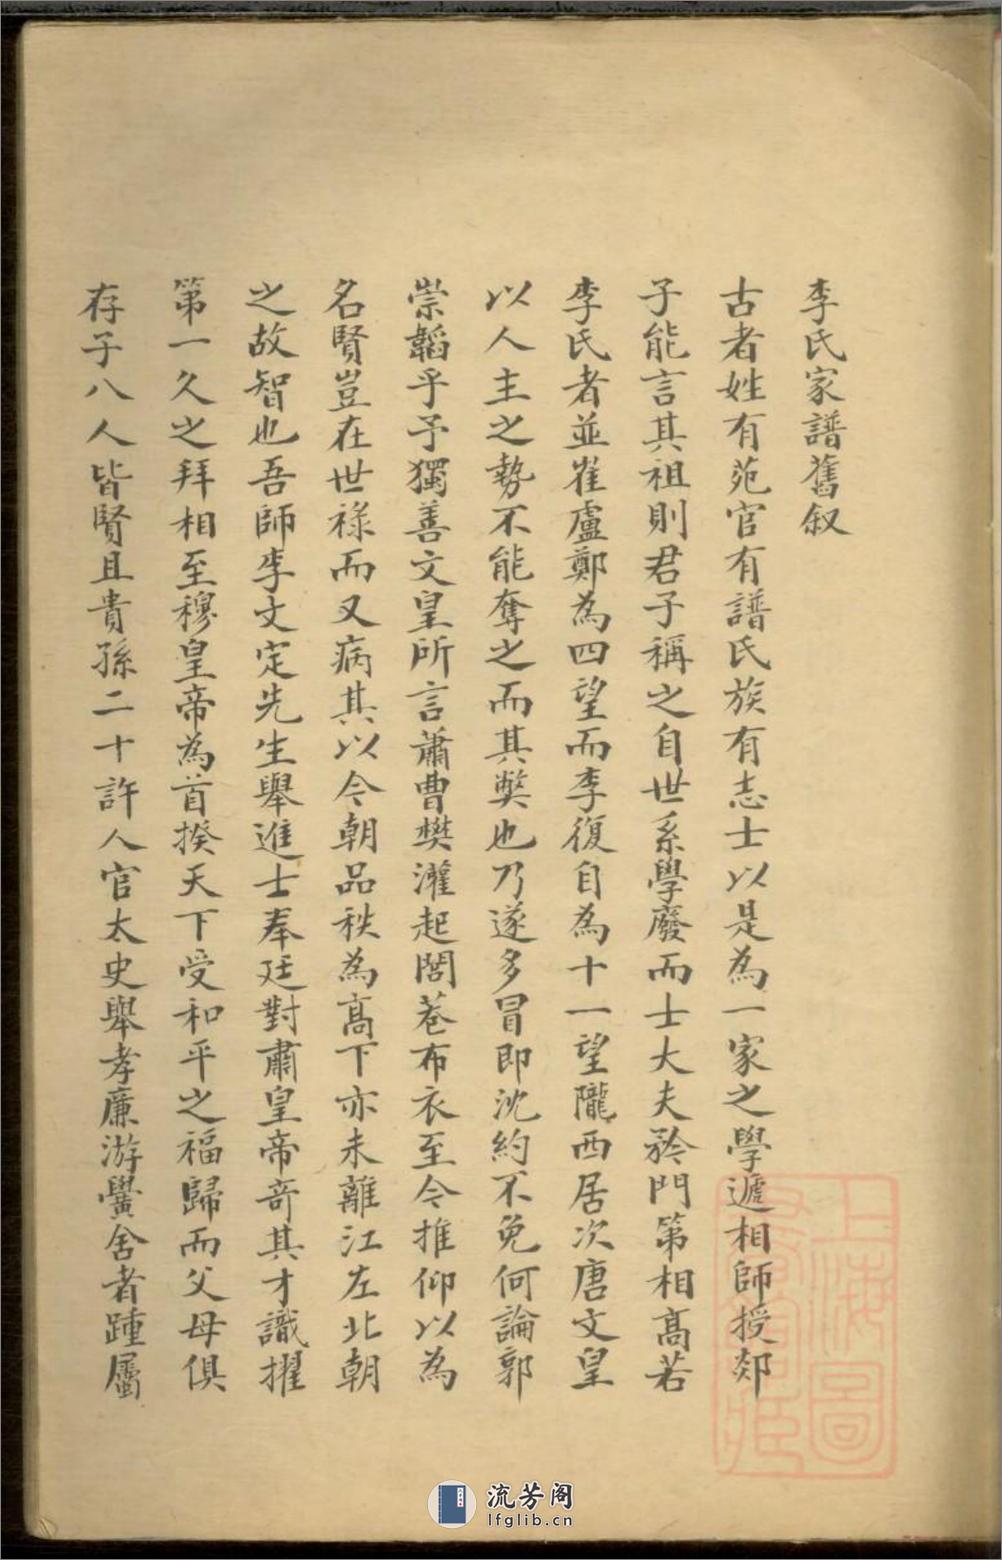 李氏家譜舊叙
古者姓有苑官有譜氏族有志士以是為一家之學遞相師授郯
子能言其祖則君子稱之自世系學廢而士大夫矜門第相高若
李氏者並崔盧鄭為四望而李復自為十一望隴西居次唐文皇
以人主之勢不能奪之而其獘也乃遂多冒即沈約不免何論郭
崇韜乎予獨善文皇所言蕭曹樊灌起閭巷布衣至今推仰以為
名賢豈在世祿而又病其以今朝品秩為高下亦未離江左北朝
之故智也吾師李文定先生舉進士奉廷對肅皇帝奇其才識擢
第一久之拜相至穆皇帝為首揆天下受和平之福歸而父母俱
存子八人皆賢且貴孫二十許人官太史舉孝廉游黌舍者踵屬
上海圖
書館藏
流芳阁
lfglib.cn